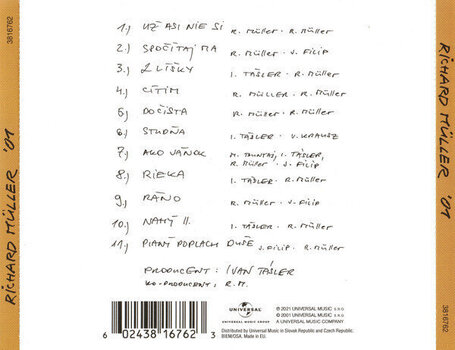 3816762
RICHARD MÜLLER '01
1.) UŽ ASI NIE SI R. Müller · R. Müller
2.) SPOČÍTAJ MA R. Müller · J. FILIP
3.) 2 LÍŠKY I. TÁSLER · R. Müller
4.) CÍTIM R. MÜLLER · R. Müller
5.) DOČISTA R. Müller · R. Müller
6.) STUDŇA I. TÁSLER · V. KRAUSZ
7.) AKO VÁNOK I. TÁSLER,
R. Müller · J. FILIP
8.) RIEKA I. TÁSLER · R. Müller
9.) RÁNO R. Müller · J. FILIP
10.) NAHÝ II. I. TÁSLER · R. Müller
11.) PLANÝ POPLACH DUŠE J. FILIP · R. Müller
PRODUCENT: IVAN TÁSLER
KO-PRODUCENT: R.M.
6 02438 16762 3
UNIVERSAL
UNIVERSAL MUSIC GROUP
℗ 2021 UNIVERSAL MUSIC s.r.o.
© 2001 UNIVERSAL MUSIC s.r.o.
A UNIVERSAL MUSIC COMPANY
Distributed by Universal Music in Slovak Republic and Czech Republic.
BIEM/OSA. Made in EU.
3816762
RICHARD MÜLLER '01